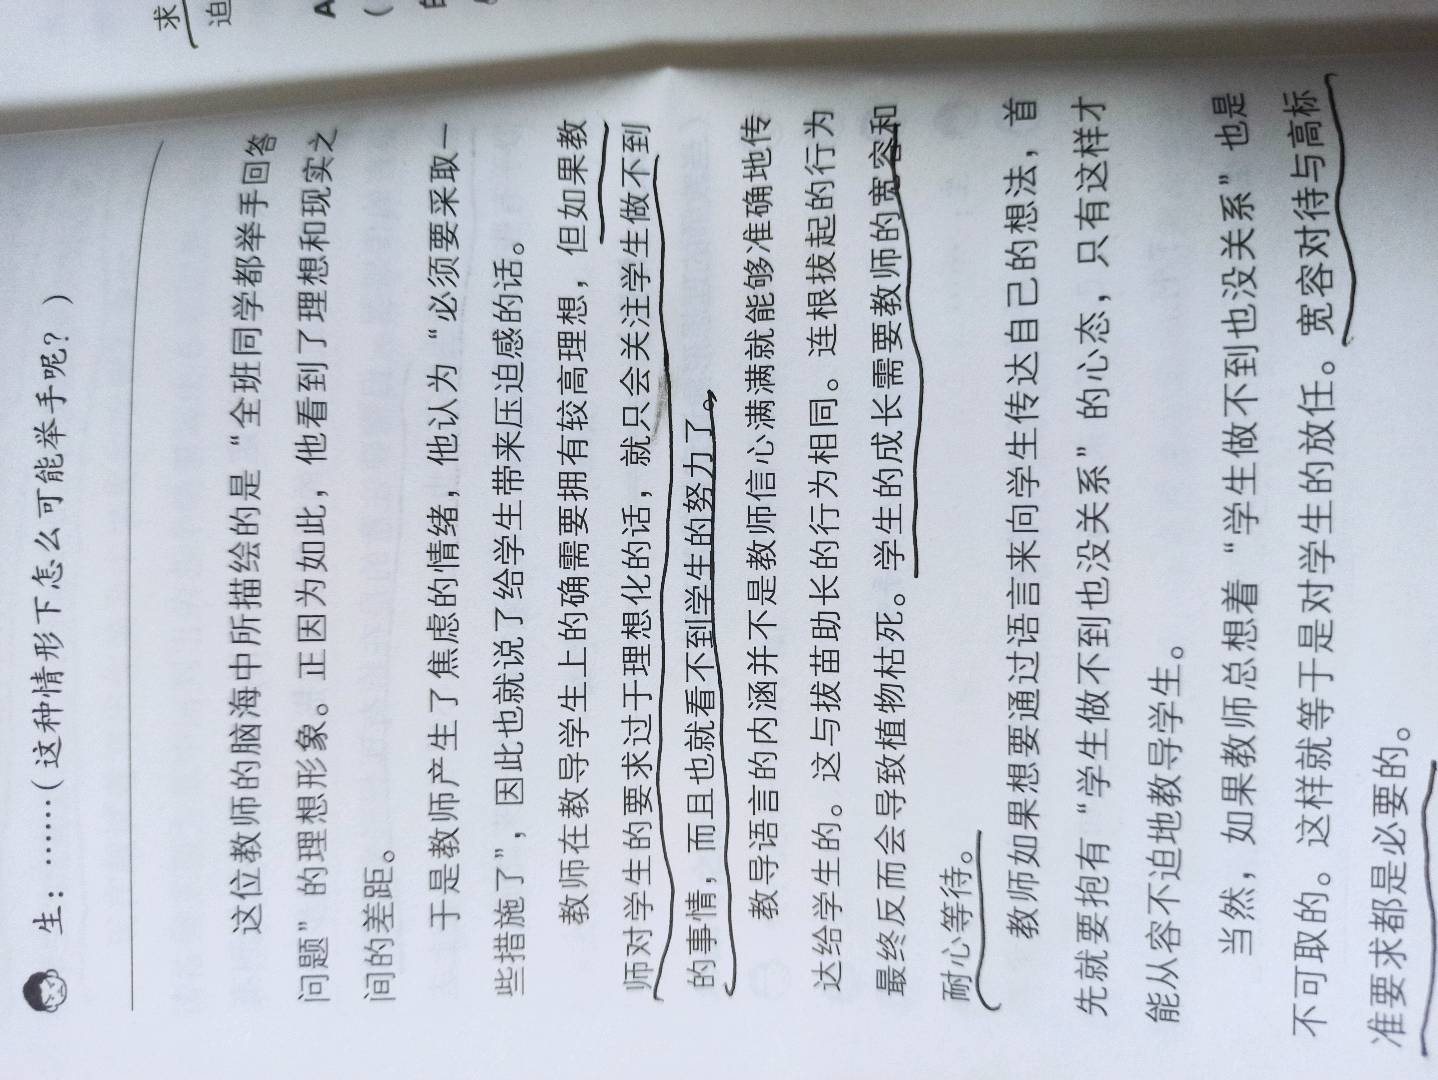 求
迫
生：……（这种情形下怎么可能举手呢？）
这位教师的脑海中所描绘的是“全班同学都举手回答
问题”的理想形象。正因为如此，他看到了理想和现实之
间的差距。
于是教师产生了焦虑的情绪，他认为“必须要采取一
些措施了”，因此也就说了给学生带来压迫感的话。
教师在教导学生上的确需要拥有较高理想，但如果教
师对学生的要求过于理想化的话，就只会关注学生做不到
的事情，而且也就看不到学生的努力了。
教导语言的内涵并不是教师信心满满就能够准确地传
达给学生的。这与拔苗助长的行为相同。连根拔起的行为
最终反而会导致植物枯死。学生的成长需要教师的宽容和
耐心等待。
教师如果想要通过语言来向学生传达自己的想法，首
先就要抱有“学生做不到也没关系”的心态，只有这样才
能从容不迫地教导学生。
当然，如果教师总想着“学生做不到也没关系”也是
不可取的。这样就等于是对学生的放任。宽容对待与高标
准要求都是必要的。